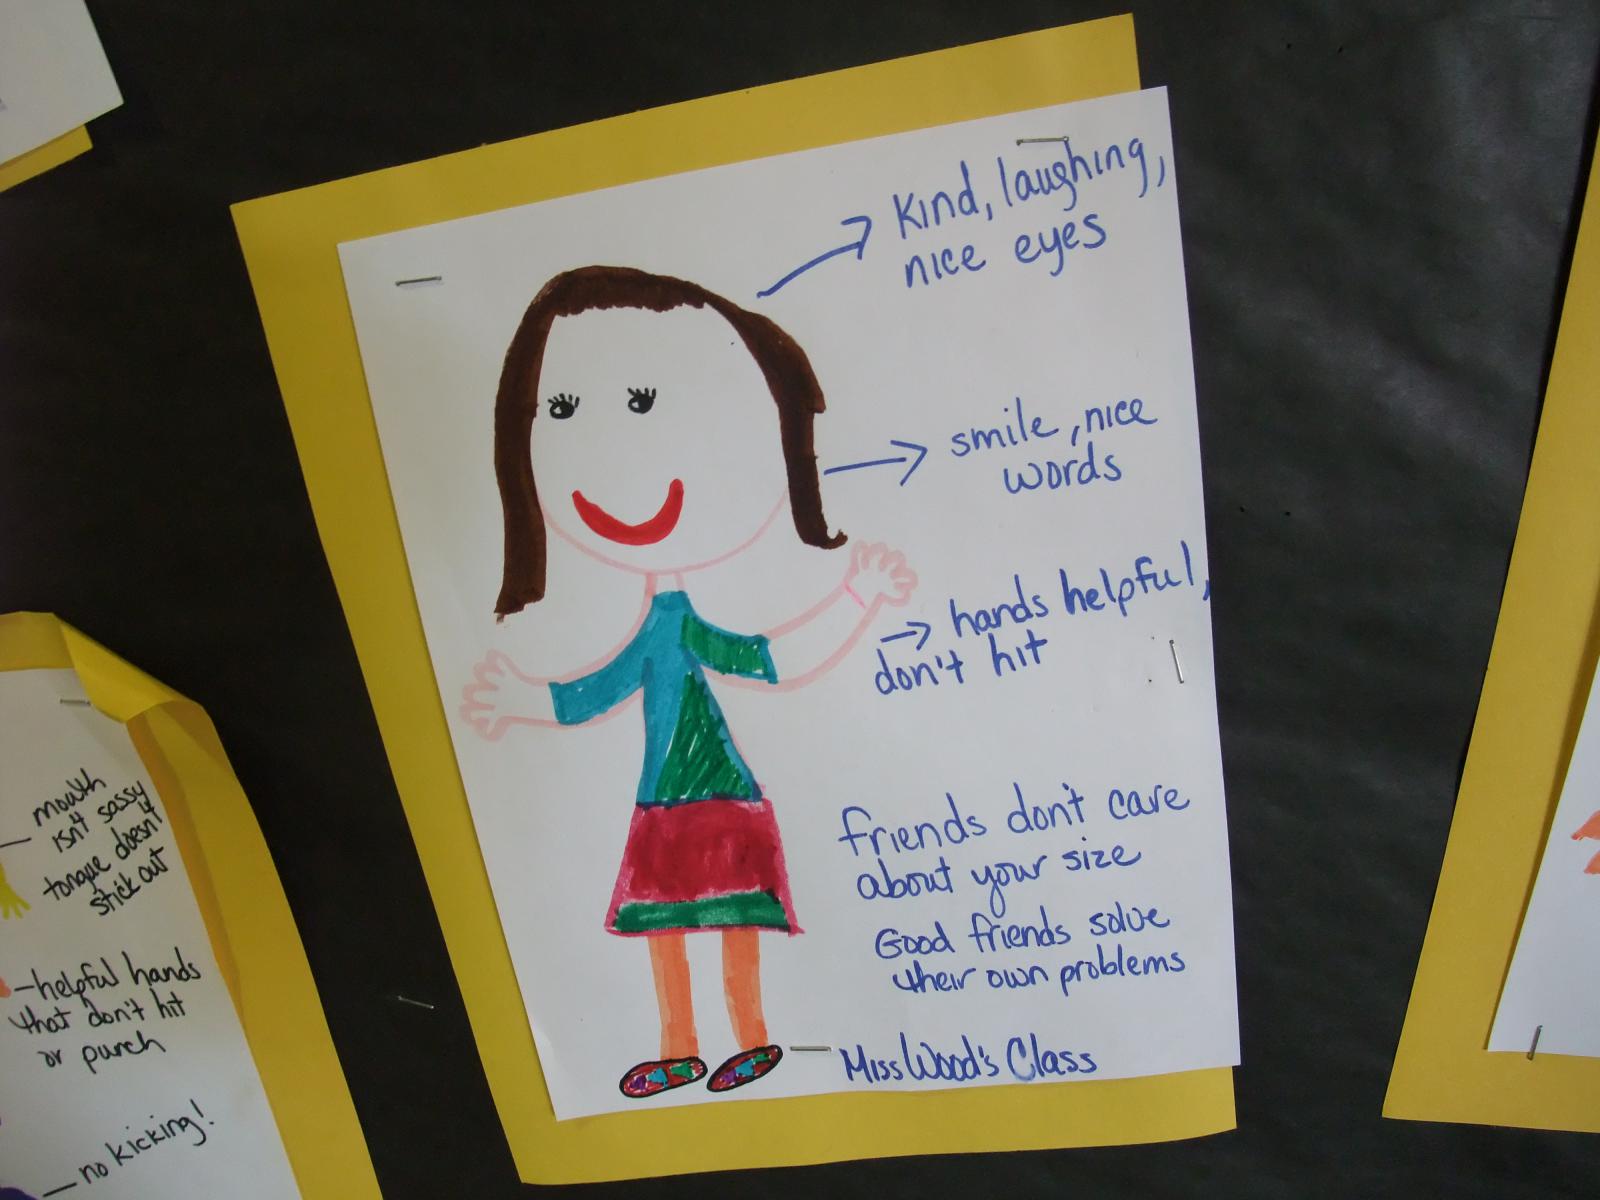 Kind, laughing,
nice eyes
smile, nice
words
hands helpful,
don't hit
friends don't care
about your size
Good friends solve
their own problems
Miss Wood's Class
mouth
isn't sassy
tongue doesn't
stick out
-helpful hands
that don't hit
or punch
no kicking!